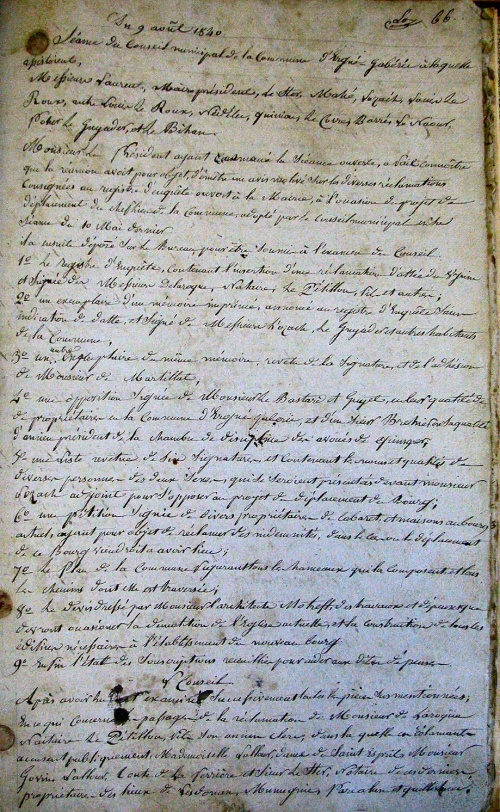 Du 9 août 1840.
66.
Séance du Conseil municipal de la Commune d'Ergué-Gabéric à laquelle
assistaient,
Messieurs Laurent, Maire président, Le Ster, Mahé, Lozach, Louis Le
Roux, autre Louis Le Roux, Nédélec, Quiniou, Le Corre, Barré, Le Naour,
Le Guyader, et Le Bihan.
Monsieur le Président ayant la Séance ouverte, a fait connaître
que la réunion avait pour objet, d'émettre un avis motivé Sur les diverses réclamations
Consignées au registre d'enquête ouvert à la Mairie, à l'occasion du projet de
déplacement du chef-lieu de la Commune, adopté par le Conseil municipal en sa
Séance du 10 Mai dernier.
Il a ensuite déposé Sur le Bureau, pour être Soumis à l'examen du Conseil.
1° Le registre d'Enquête, contenant l'insertion d'une réclamation
et Signée de Messieurs Delaroque, Nataire, Le Pétillon, et autres;
2° un exemplaire d'un mémoire imprimé, annexé au registre d'Enquête Sans
indication de datte, et Signé de Messieurs Lozach, Le Guyader et autres habitants
de la Commune;
3° un autre exemplaire du même mémoire, revêtu de la Signature, et de l'adhésion
de Monsieur de Marhallac,
4° une opposition Signée de Monsieur Le Bastard et Guyet, en leur qualité de
de propriétaires en la Commune d'Ergué Gabéric, et d'un Sieur en sa qualité
d'ancien président de la chambre de discipline des avoués de
5° une liste revêtue de Six Signatures et contenant les noms et qualités de
diverses personnes des deux Sexes, qui Se Seraient présentées devant monsieur
Lozach adjoint pour S'opposer au projet de déplacement du Bourg;
6° une pétition Signée de divers propriétaires de Cabarets, et maisons au bourg
actuel, ayant pour objet de réclamer des indemnités, dans le cas où le déplacement
de ce Bourg viendrait à avoir lieu;
7° Le plan de la Commune figurant tous les hameaux qui la composent et tous
les chemins dont elle est traversée;
8° Le devis dressé par Monsieur l'architecte des travaux et dépenses que
devront occasionner la démolition de l'Eglise actuelle, et la Construction de tous les
édifices nécessaires à l'établissement du nouveau bourg.
9° Enfin l'Etat des Souscriptions recueillies pour aider aux dites dépenses.
Le Conseil
Après avoir lu et examiné Successivement toutes les pièces sus mentionnées;
En ce qui Concerne le passage de la réclamation de Monsieur de Laroque
Nataire Le Pétillon, dans laquelle en déclarant
accusant publiquement, Mademoiselle Lallour, dame de Saint Esprit, Monsieur
Lallour, Comte de La Ferrière et Sieur Le Ster, Notaire
propriétaire des lieux de Lesdonan, Munuguic,